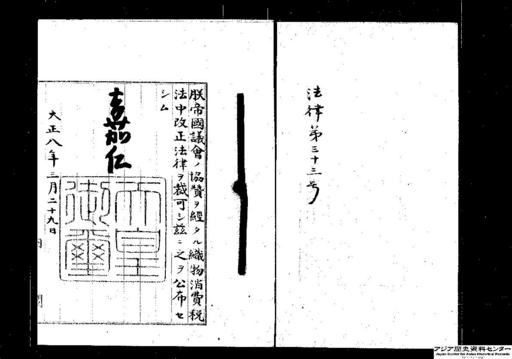 法律第三十三号
朕帝國議會ノ協賛ヲ經タル織物消費税
法中改正法律ヲ裁可シ茲ニ之ヲ公布セ
シム
嘉仁
天皇
御璽
大正八年三月二十九日
アジア歴史資料センター
Japan Center for Asian Historical Records